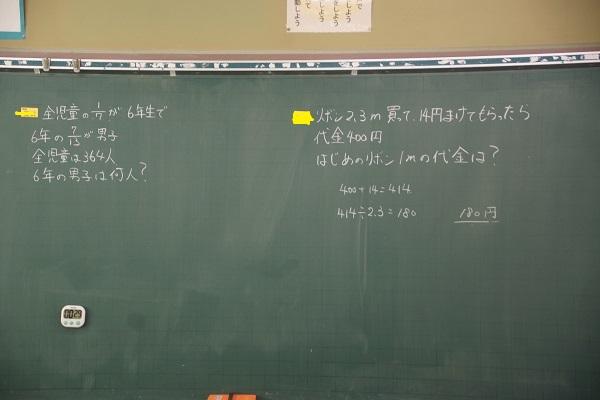 全児童の 1/7が 6年生で
6年の 7/13が男子
全児童は364人
6年の男子は何人?
リボン2.3m 買って、14円まけてもらったら
代金400円
はじめのリボン1mの代金は?
400+14=414
414÷2.3=180
180円